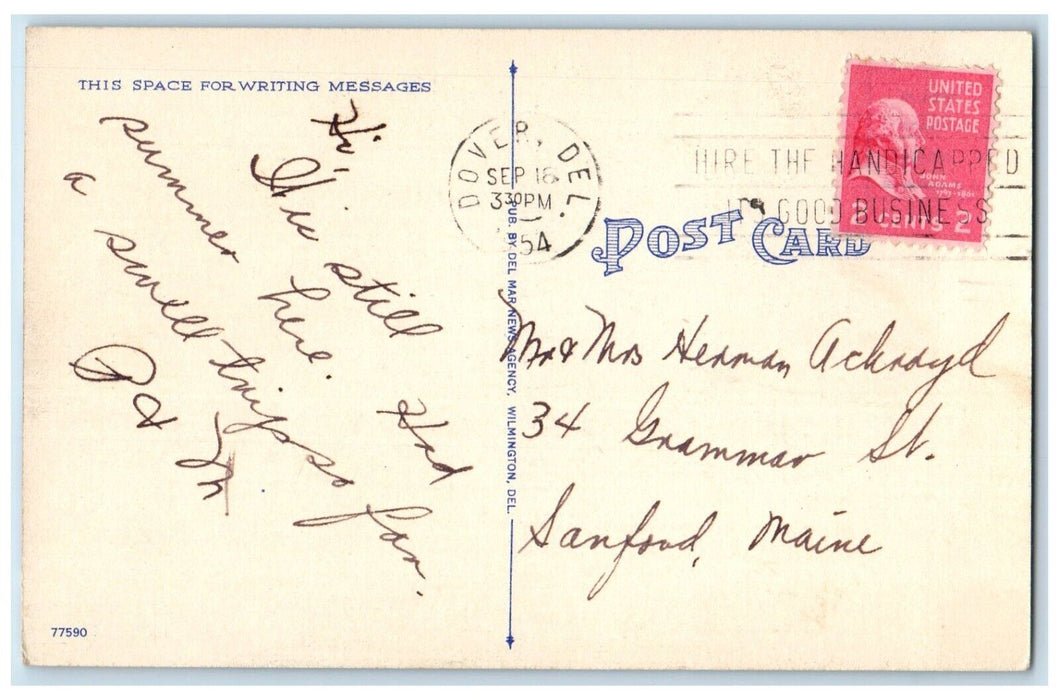 THIS SPACE FOR WRITING MESSAGES
Hi,
It is still
summer here. Had
a swell trip so far.
P & M
DOVER, DEL.
SEP 18
3 30 PM
1954
HIRE THE HANDICAPPED
IT'S GOOD BUSINESS
UNITED
STATES
POSTAGE
JOHN
ADAMS
1797-1801
2 CENTS 2
POST CARD
PUB. BY DEL MAR NEWS AGENCY, WILMINGTON, DEL.
Mr & Mrs Herman Ackroyd
34 Grammar St.
Sanford, Maine
77590